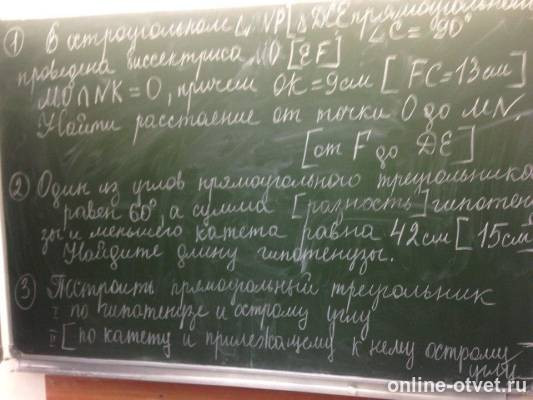 ① В остроугольном MNP [ΔDCE прямоугольном
проведена биссектриса ∠C = 90°
MO [EF]
MO∩NK = O, причем OK = 9см [FC = 13см]
Найти расстояние от точки O до MN.
[от F до DE]
② Один из углов прямоугольного треугольника
равен 60°, а сумма [разность] гипотену
зы и меньшего катета равна 42см [15см
Найдите длину гипотенузы.
③ Построить прямоугольный треугольник
I по гипотенузе и острому углу
II [по катету и прилежащему к нему острому
углу
online-otvet.ru